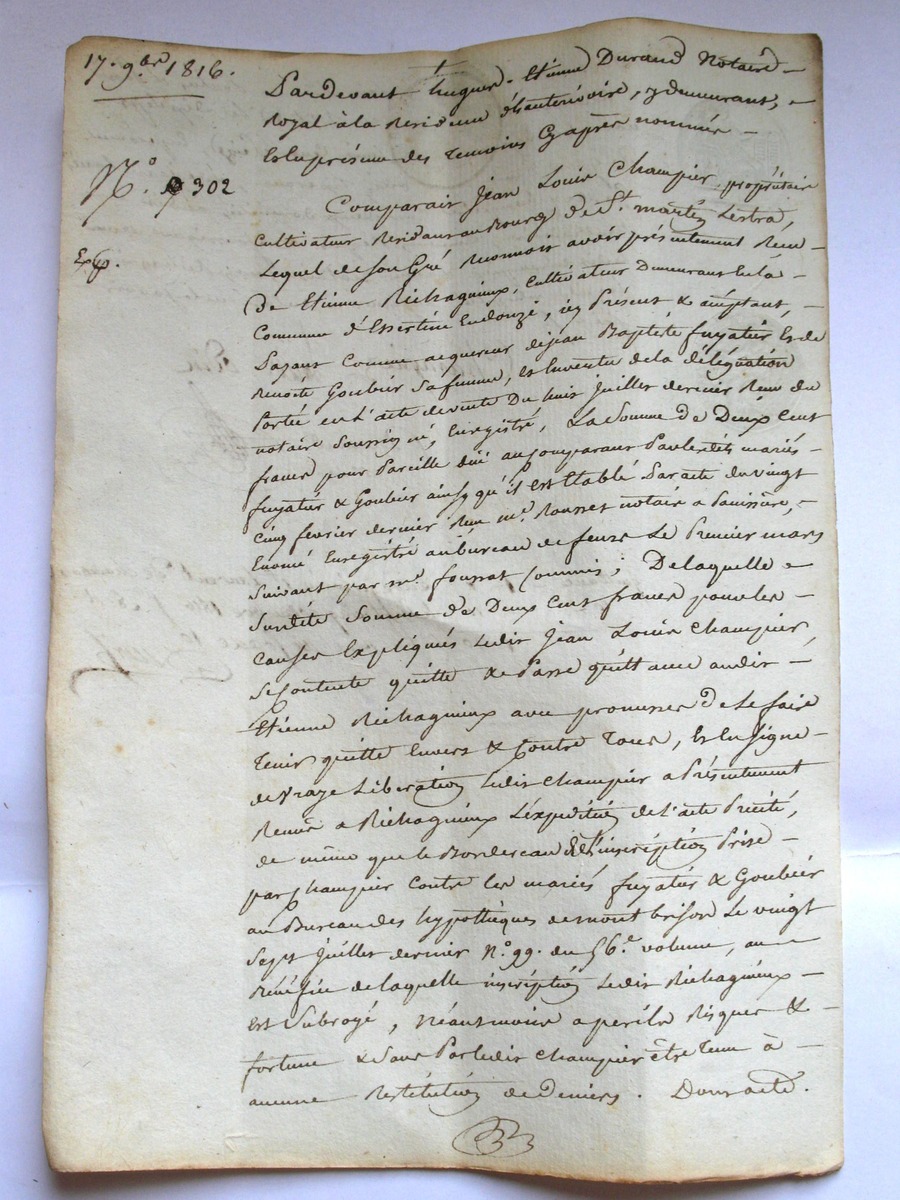 17. 9bre 1816.
N.° 302
Exp.
Pardevant hugues-Etienne Durand Notaire
Royal à la Residence d'hauterivoire, y demeurant,
Et en présence des temoins cy après nommés
Comparait Jean Louis Champier propriétaire
Cultivateur Residant au Bourg de St. martin Lestra,
Lequel de son Gré Reconnoit avoir présentement Reçu
De Etienne Richagnieux, Cultivateur Demeurant en la
Commune d'Essertine Endonzi, icy Présent & acceptant,
Payant Comme acquereur de jean Baptiste fuyatier Et de
Benoite Goubier Sa femme, Et Ensuite de la délégation
Portée en L'acte de vente Du huit Juillet dernier Reçu du
notaire Soussigné, Enregistré, La Somme de Deux Cent
francs pour Pareille due au Comparant Par lesdits mariés
fuyatier & Goubier ainsy qu'il est Etablé Par acte du vingt
Cinq fevrier dernier Reçu me. Rousset notaire a Panissière,
Enoncé Enregistré au bureau de feurs Le Premier mars
Suivant par mr. foussat Commis; De laquelle
Susdite Somme de Deux Cent francs pour les
Causes Expliquées Ledit Jean Louis Champier,
Se Contente quitte & Passe quittance audit
Etienne Richagnieux avec promesses De Le faire
Tenir quitte Envers & Contre Tous, Et En Signe
de Vraye Libération Ledit Champier a Présentement
Remis a Richagnieux L'expédition de L'acte Précité,
de même que le Bordereau de L'inscription Prise
par Champier Contre les mariés fuyatier & Goubier
au Bureau des hypothèques de montbrison Le vingt
Sept Juillet dernier N.° 99. du 56.e volume, au
Bénéfice de laquelle inscription Ledit Richagnieux
est Subrogé, Néantmoins a perils Risques &
fortune & Sans Par ledit Champier être Tenu à
aucune Restitution de Deniers. Dont acte.